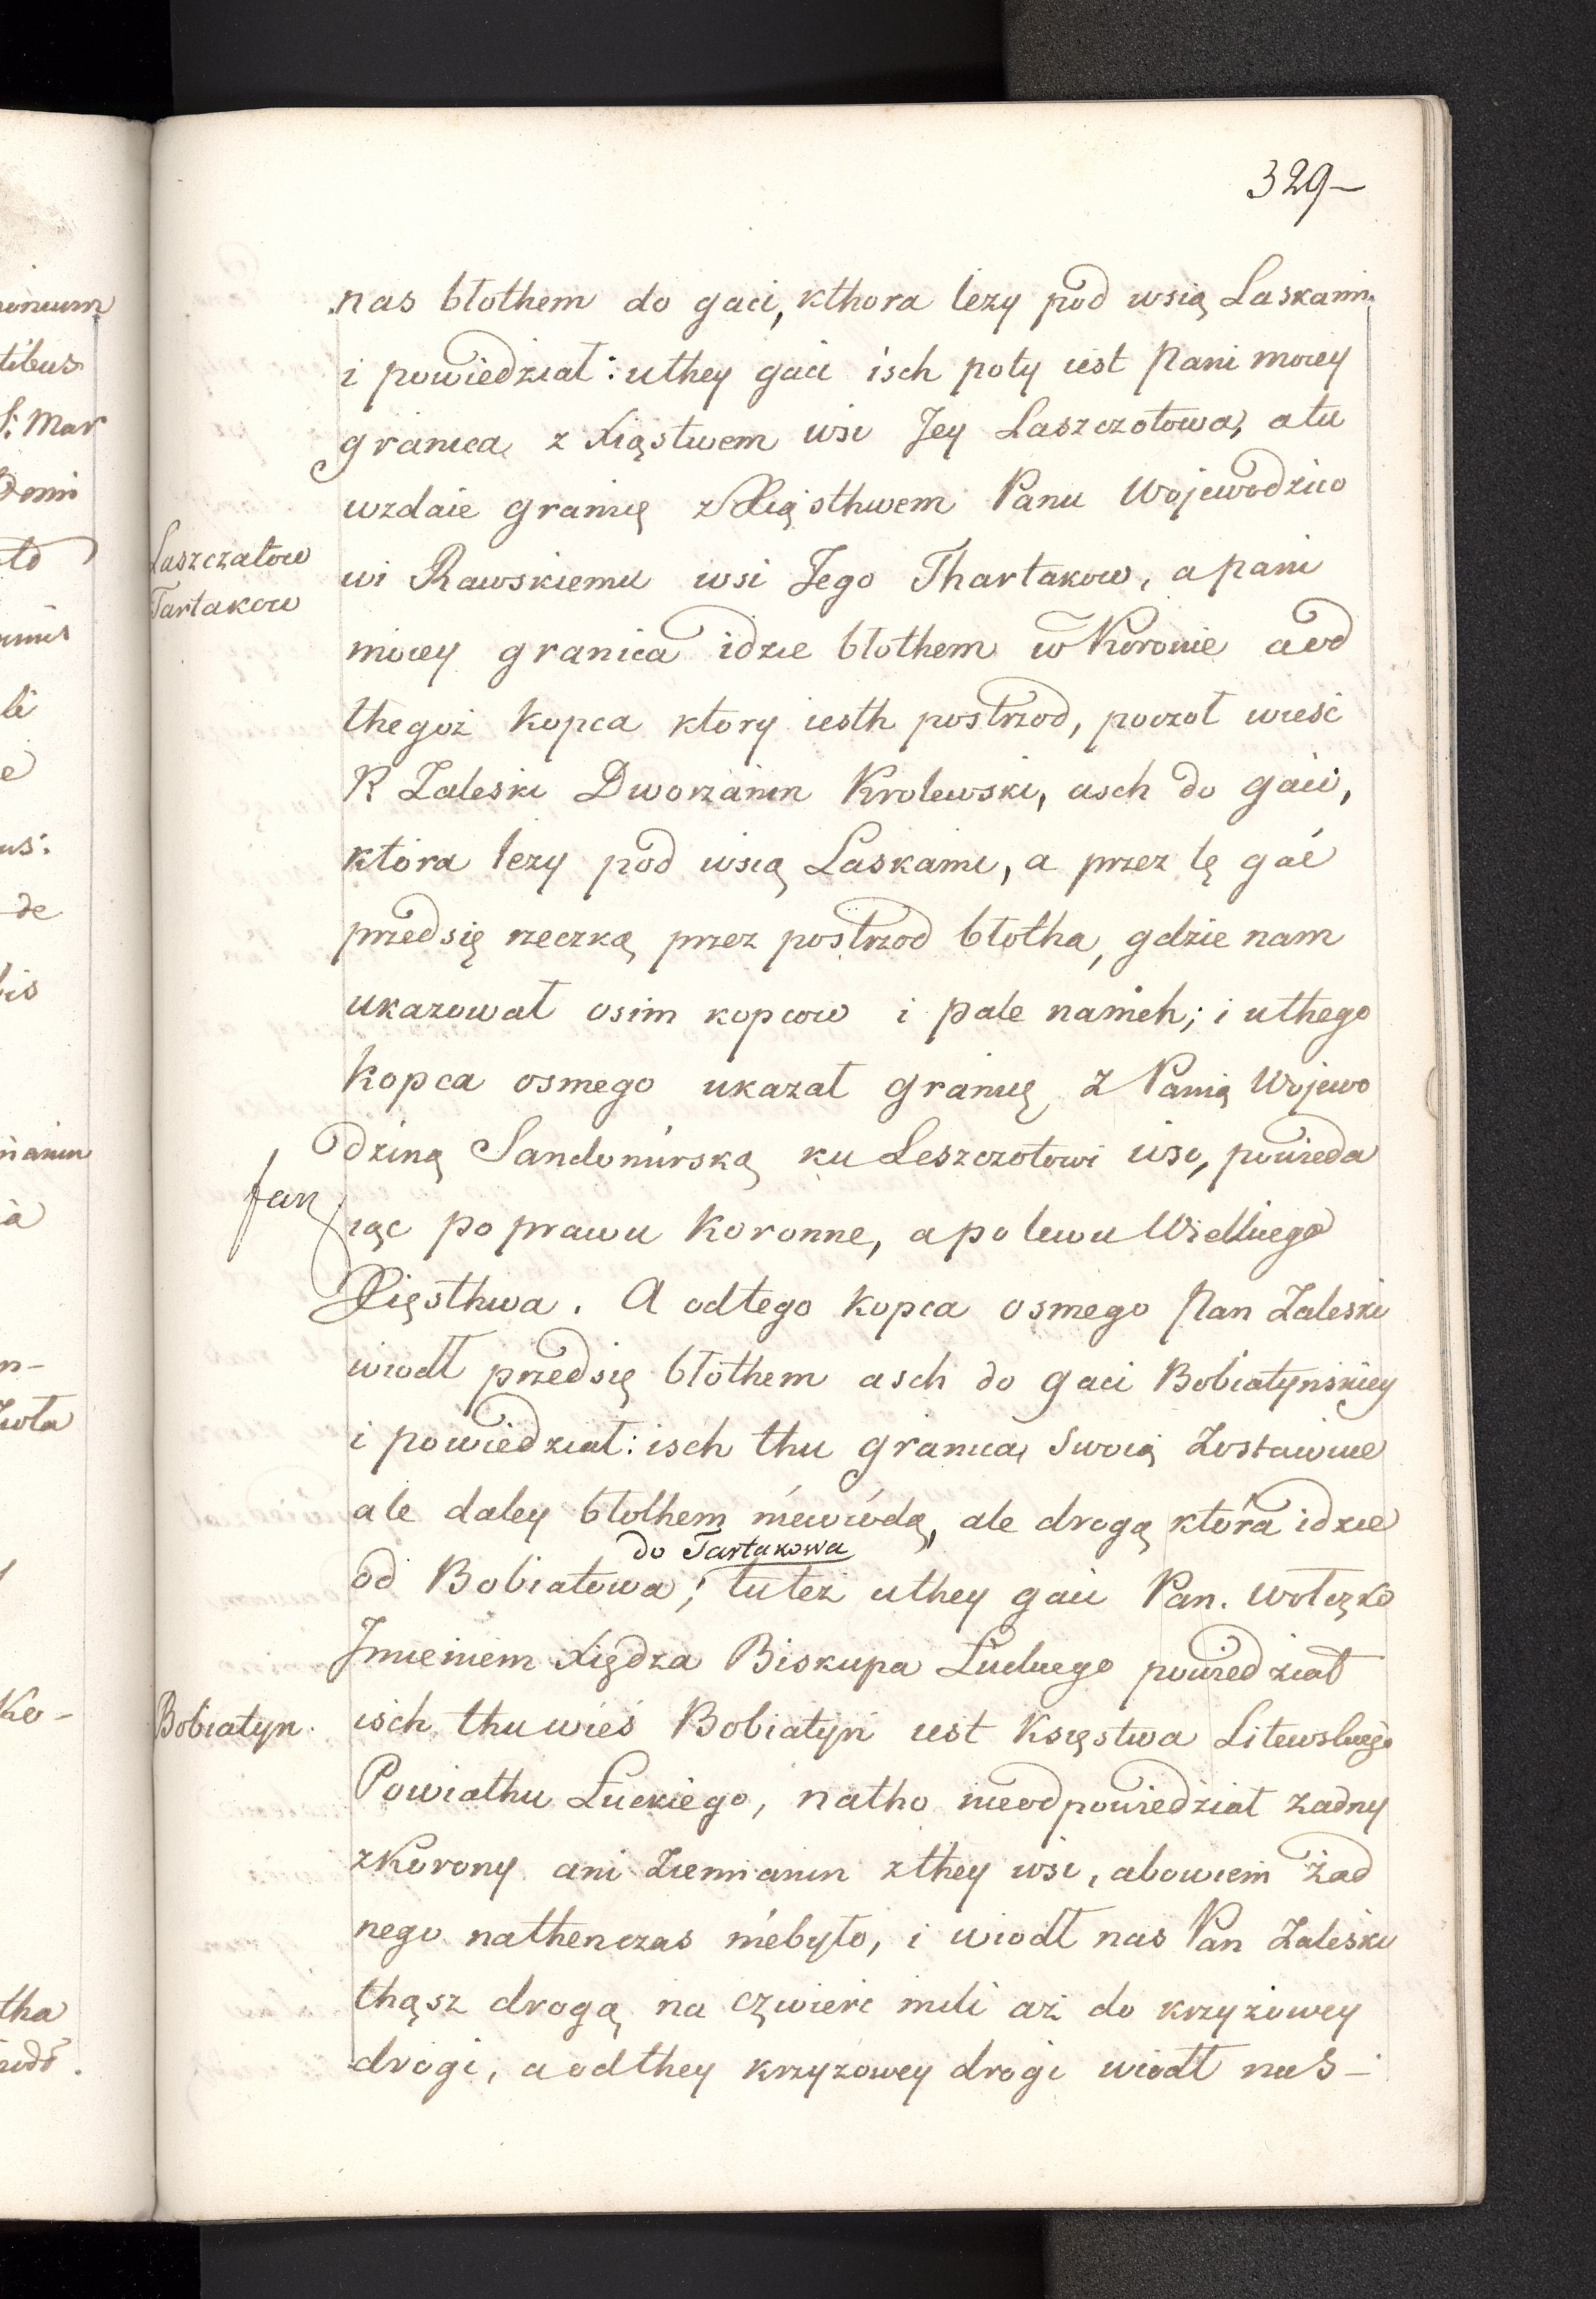 329-
nas błothem do gaci, kthora lezy pod wsią Laskami.
i powiedział: uthey gaci isch poty iest Pani moiey
granica, z Xięstwem wsi Jey Laszczotowa, atu
wzdaie granię z Xięsthwem Panu Wojewodzico
Laszczatow
wi Rawskiemu wsi Jego Thartakow, a pani
Tartakow
moiey granica idzie błothem w Koronie aod
thegoż kopca ktory iesth postrzod, poczoł wieść
P. Zaleski Dworzanin Krolewski, asch do gaci,
która lezy pod wsią Laskami, a przez tę gać
przedsię rzeczką przez postrzod błotha, gdzie nam
ukazował osim kopcow i pale nanich; i uthego
kopca osmego ukazał granię z Panią Wojewo
dziną Sandomirską ku Leszczotowi wsi, powieda
iąc po prawu Koronne, apo lewu Wielkiego
Xięsthwa. A odtego kopca osmego Pan Zaleski
wiodł przedsię błothem asch do gaci Bobiatynskiey
i powiedział: isch thu granica, swoią zostawuie
ale daley błothem niewiódą, ale drogą która idzie
do Tartakowa
od Bobiatowa; tuteż uthey gaci Pan. Wołczko
Imieniem Xiędza Biskupa Łuckiego powiedział
Bobiatyn.
isch thu wieś Bobiatyń iest Księstwa Litewskiego
Powiathu Łuckiego, natho nieodpowiedział żadny
zKorony ani Ziemianin zthey wsi, abowiem żad
nego nathenczas niebyło, i wiodł nas Pan Zaleski
thąsz drogą na czwierć mili aż do krzyżowey
drogi, aodthey krzyzowey drogi wiodł nas-